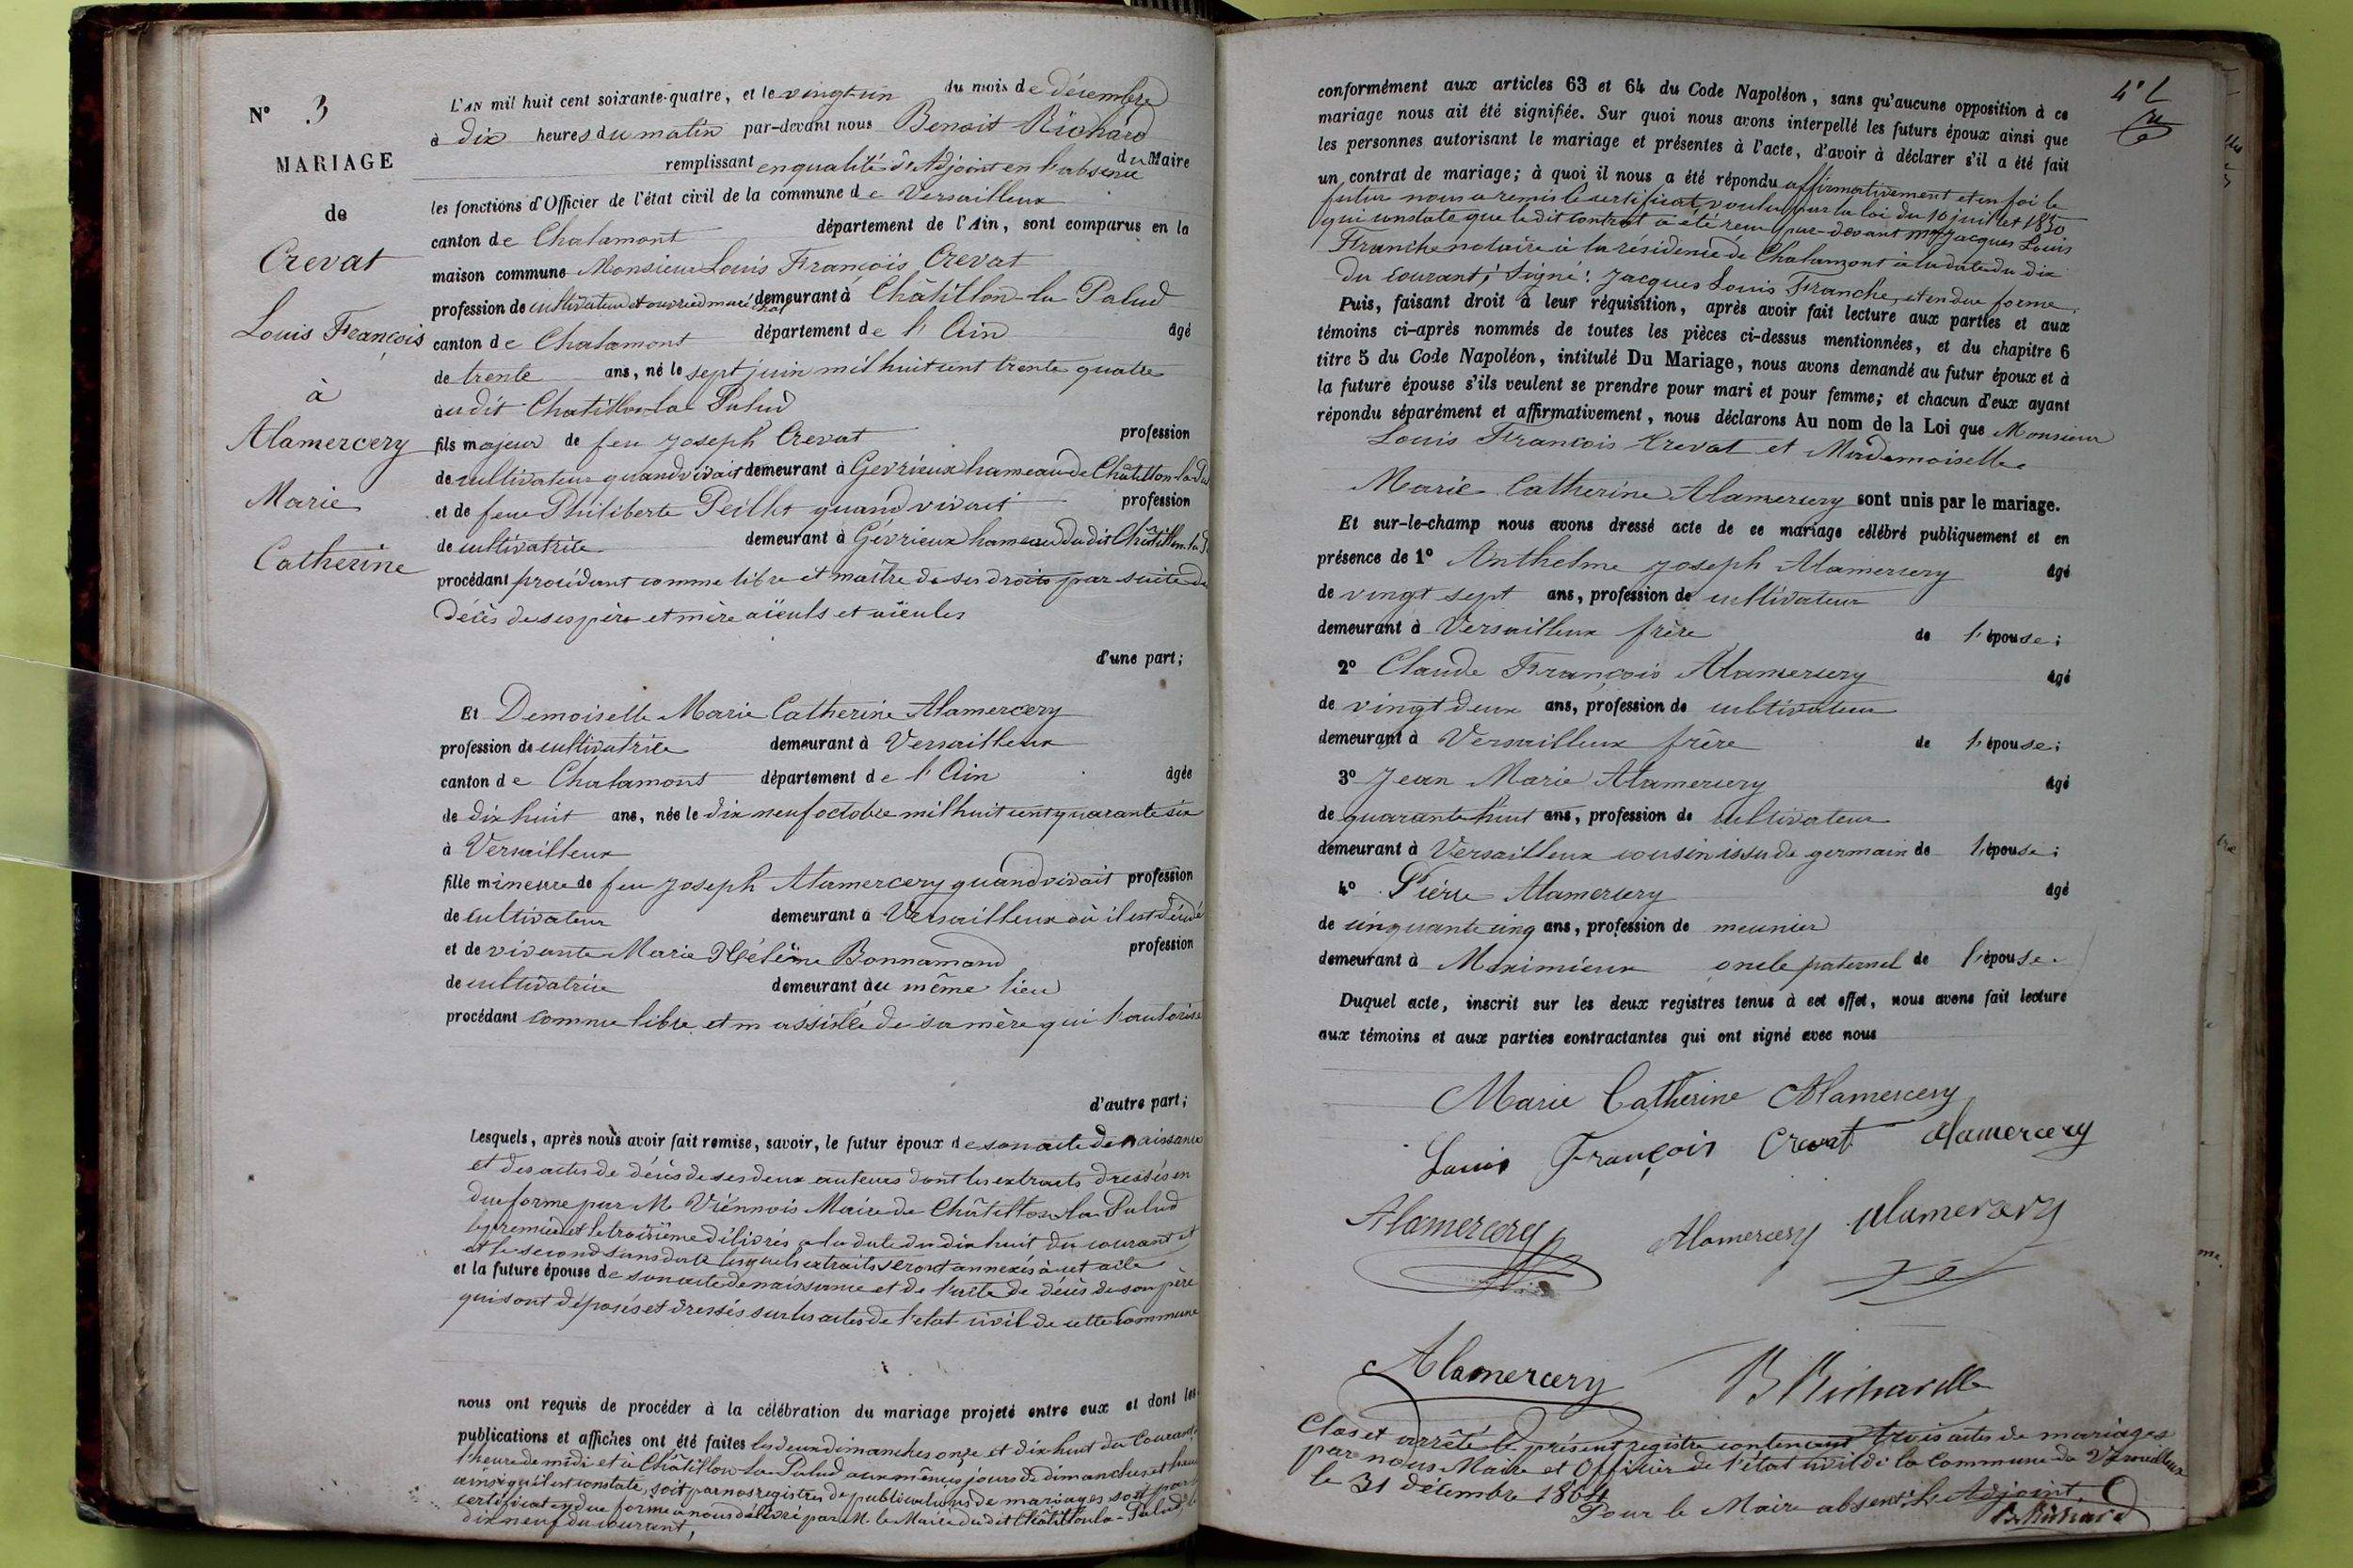 N° 3
MARIAGE
de
Crevat
Louis François
à
Alamercery
Marie
Catherine
L'AN mil huit cent soixante-quatre, et le vingt-un du mois de décembre
à dix heures du matin par-devant nous Benoit Richard
remplissant en qualité d'Adjoint en l'absence du Maire
les fonctions d'Officier de l'état civil de la commune de Versailleux
canton de Chalamont département de l'Ain, sont comparus en la
maison commune Monsieur Louis François Crevat
profession de cultivateur et ouvrier maréchal demeurant à Châtillon-la-Palud
canton de Chalamont département de l'Ain âgé
de trente ans, né le sept juin mil huit cent trente quatre
audit Chatillon-la-Palud
fils majeur de feu Joseph Crevat profession
de cultivateur quand vivait demeurant à Gevrieux hameau de Châtillon-la-Pd
et de feue Philiberte Peillet quand vivait profession
de cultivatrice demeurant à Gévrieux hameau dudit Châtillon-la-P
procédant procédant comme libre et maître de ses droits par suite du
décès de ses père et mère aïeuls et aïeules
d'une part;
Et Demoiselle Marie Catherine Alamercery
profession de cultivatrice demeurant à Versailleux
canton de Chalamont département de l'Ain âgée
de dix huit ans, née le dix neuf octobre mil huit cent quarante six
à Versailleux
fille mineure de feu Joseph Alamercery quand vivait profession
de cultivateur demeurant à Versailleux où il est décédé
et de vivante Marie Hélène Bonnamand profession
de cultivatrice demeurant au même lieu
procédant comme libre et m assistée de sa mère qui l'autorise
d'autre part;
Lesquels, après nous avoir fait remise, savoir, le futur époux de son acte de naissance
et des actes de décès de ses deux auteurs dont les extraits dressés en
due forme par M. Viennois Maire de Châtillon-la-Palud
le premier et le troisième délivrés à la date du dix huit du courant et
et le second sans date lesquels extraits seront annexés à cet acte
et la future épouse de son acte de naissance et de l'acte de décès de son père
qui sont déposés et dressés sur les actes de l'état civil de cette commune
nous ont requis de procéder à la célébration du mariage projeté entre eux et dont les
publications et affiches ont été faites les deux dimanches onze et dix huit du courant
l'heure de midi et à Châtillon-la-Palud aux mêmes jours de dimanches et heure
ainsi qu'il est constaté, soit par nos registres de publications de mariages soit par le
certificat en due forme à nous délivré par M. le Maire dudit Châtillon-la-Palud, le
dix neuf du courant,
conformément aux articles 63 et 64 du Code Napoléon, sans qu'aucune opposition à ce
mariage nous ait été signifiée. Sur quoi nous avons interpellé les futurs époux ainsi que
les personnes autorisant le mariage et présentes à l'acte, d'avoir à déclarer s'il a été fait
un contrat de mariage; à quoi il nous a été répondu affirmativement et en foi le
futur nous a remis le certificat, voulu par la loi du 10 juillet 1850
qui constate que ledit contrat a été reçu par-devant Me Jacques Louis
Franche notaire à la résidence de Chalamont à la date du dix
du courant; Signé: Jacques Louis Franche, et en due forme.
Puis, faisant droit à leur réquisition, après avoir fait lecture aux parties et aux
témoins ci-après nommés de toutes les pièces ci-dessus mentionnées, et du chapitre 6
titre 5 du Code Napoléon, intitulé Du Mariage, nous avons demandé au futur époux et à
la future épouse s'ils veulent se prendre pour mari et pour femme; et chacun d'eux ayant
répondu séparément et affirmativement, nous déclarons Au nom de la Loi que Monsieur
Louis François Crevat et Mademoiselle
Marie Catherine Alamercery sont unis par le mariage.
Et sur-le-champ nous avons dressé acte de ce mariage célébré publiquement et en
présence de 1° Anthelme Joseph Alamercery âgé
de vingt sept ans, profession de cultivateur
demeurant à Versailleux frère de l'épouse;
2° Claude François Alamercery âgé
de vingt deux ans, profession de cultivateur
demeurant à Versailleux frère de l'épouse;
3° Jean Marie Alamercery âgé
de quarante huit ans, profession de cultivateur
demeurant à Versailleux cousin issu de germain de l'épouse;
4° Pierre Alamercery âgé
de cinquante cinq ans, profession de meunier
demeurant à Meximieux oncle paternel de l'épouse.
Duquel acte, inscrit sur les deux registres tenus à cet effet, nous avons fait lecture
aux témoins et aux parties contractantes qui ont signé avec nous
Marie Catherine Alamercery
Louis François Crevat Alamercery
Alamercery Alamercery Alamercery
Alamercery B Richard
Clos et arrêté le présent registre contenant trois actes de mariages
par nous Maire et Officier de l'état civil de la Commune de Versailleux
le 31 décembre 1864
Pour le Maire absent L'Adjoint,
B. Richard